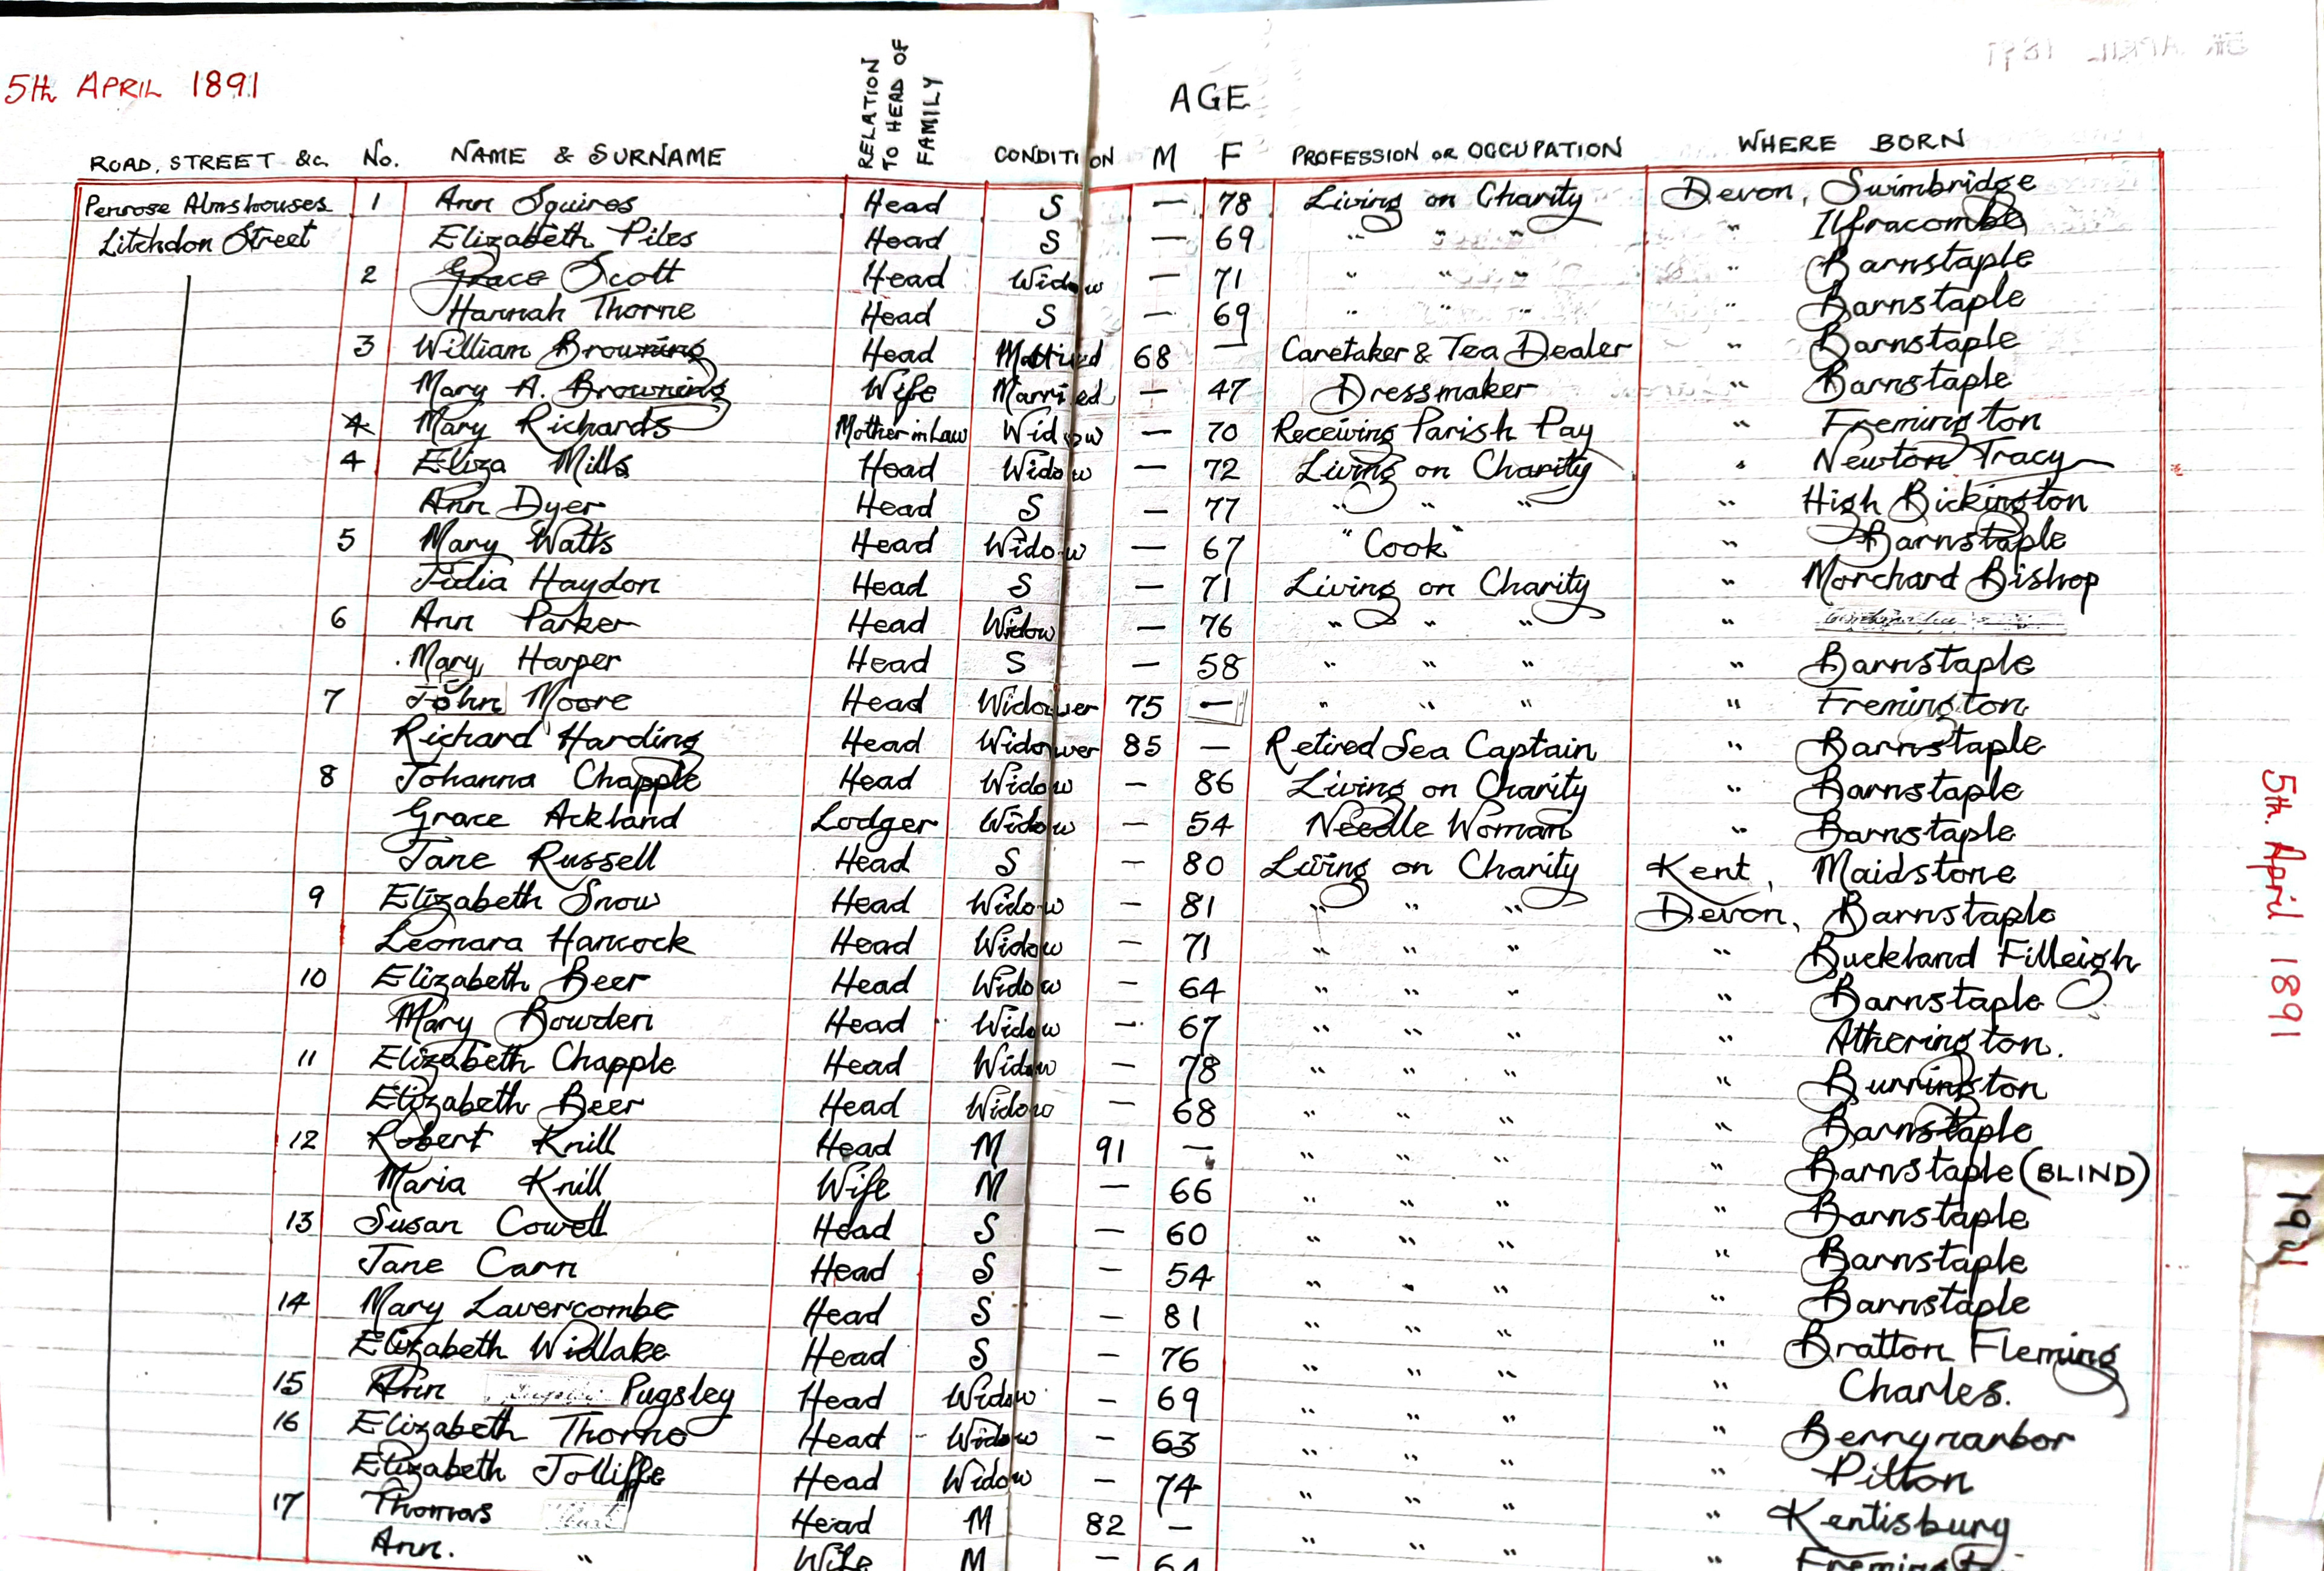 5th APRIL 1891
RELATION TO HEAD OF FAMILY
AGE
ROAD, STREET &c. No. NAME & SURNAME CONDITION M F PROFESSION OR OCCUPATION WHERE BORN
Penrose Almshouses 1 Ann Squires Head S — 78 Living on Charity Devon, Swimbridge
Litchdon Street Elizabeth Piles Head S — 69 " " " " Ilfracombe
2 Grace Scott Head Widow — 71 " " " " Barnstaple
Hannah Thorne Head S — 69 " " " " Barnstaple
3 William Browning Head Married 68 — Caretaker & Tea Dealer " Barnstaple
Mary A. Browning Wife Married — 47 Dressmaker " Barnstaple
4 Mary Richards Mother in Law Widow — 70 Receiving Parish Pay " Fremington
4 Eliza Mills Head Widow — 72 Living on Charity " Newton Tracy
Ann Dyer Head S — 77 " " " " High Bickington
5 Mary Watts Head Widow — 67 "Cook" " Barnstaple
Haydon Head S — 71 Living on Charity " Morchard Bishop
6 Ann Parker Head Widow — 76 " " " "
Mary Harper Head S — 58 " " " " Barnstaple
7 John Moore Head Widower 75 — " " " " Fremington
Richard Harding Head Widower 85 — Retired Sea Captain " Barnstaple
8 Johanna Chapple Head Widow — 86 Living on Charity " Barnstaple
Grace Ackland Lodger Widow — 54 Needle Woman " Barnstaple
Jane Russell Head S — 80 Living on Charity Kent, Maidstone
9 Elizabeth Snow Head Widow — 81 " " " Devon, Barnstaple
Leonara Hancock Head Widow — 71 " " " " Buckland Filleigh
10 Elizabeth Beer Head Widow — 64 " " " " Barnstaple
Mary Bowden Head Widow — 67 " " " " Atherington.
11 Elizabeth Chapple Head Widow — 78 " " " " Burrington
Elizabeth Beer Head Widow — 68 " " " " Barnstaple
12 Robert Knill Head M 91 — " " " " Barnstaple (BLIND)
Maria Knill Wife M — 66 " " " " Barnstaple
13 Susan Cowell Head S — 60 " " " " Barnstaple
Jane Carn Head S — 54 " " " " Barnstaple
14 Mary Lavercombe Head S — 81 " " " " Bratton Fleming
Elizabeth Widlake Head S — 76 " " " " Charles.
15 Ann Pugsley Head Widow — 69 " " " " Berrynarbor
16 Elizabeth Thorne Head Widow — 63 " " " " Pilton
Elizabeth Jolliffe Head Widow — 74 " " " " Kentisbury
17 Thomas Head M 82 — " " " "
Ann. " Wife M — 64
5th. April 1891
1901